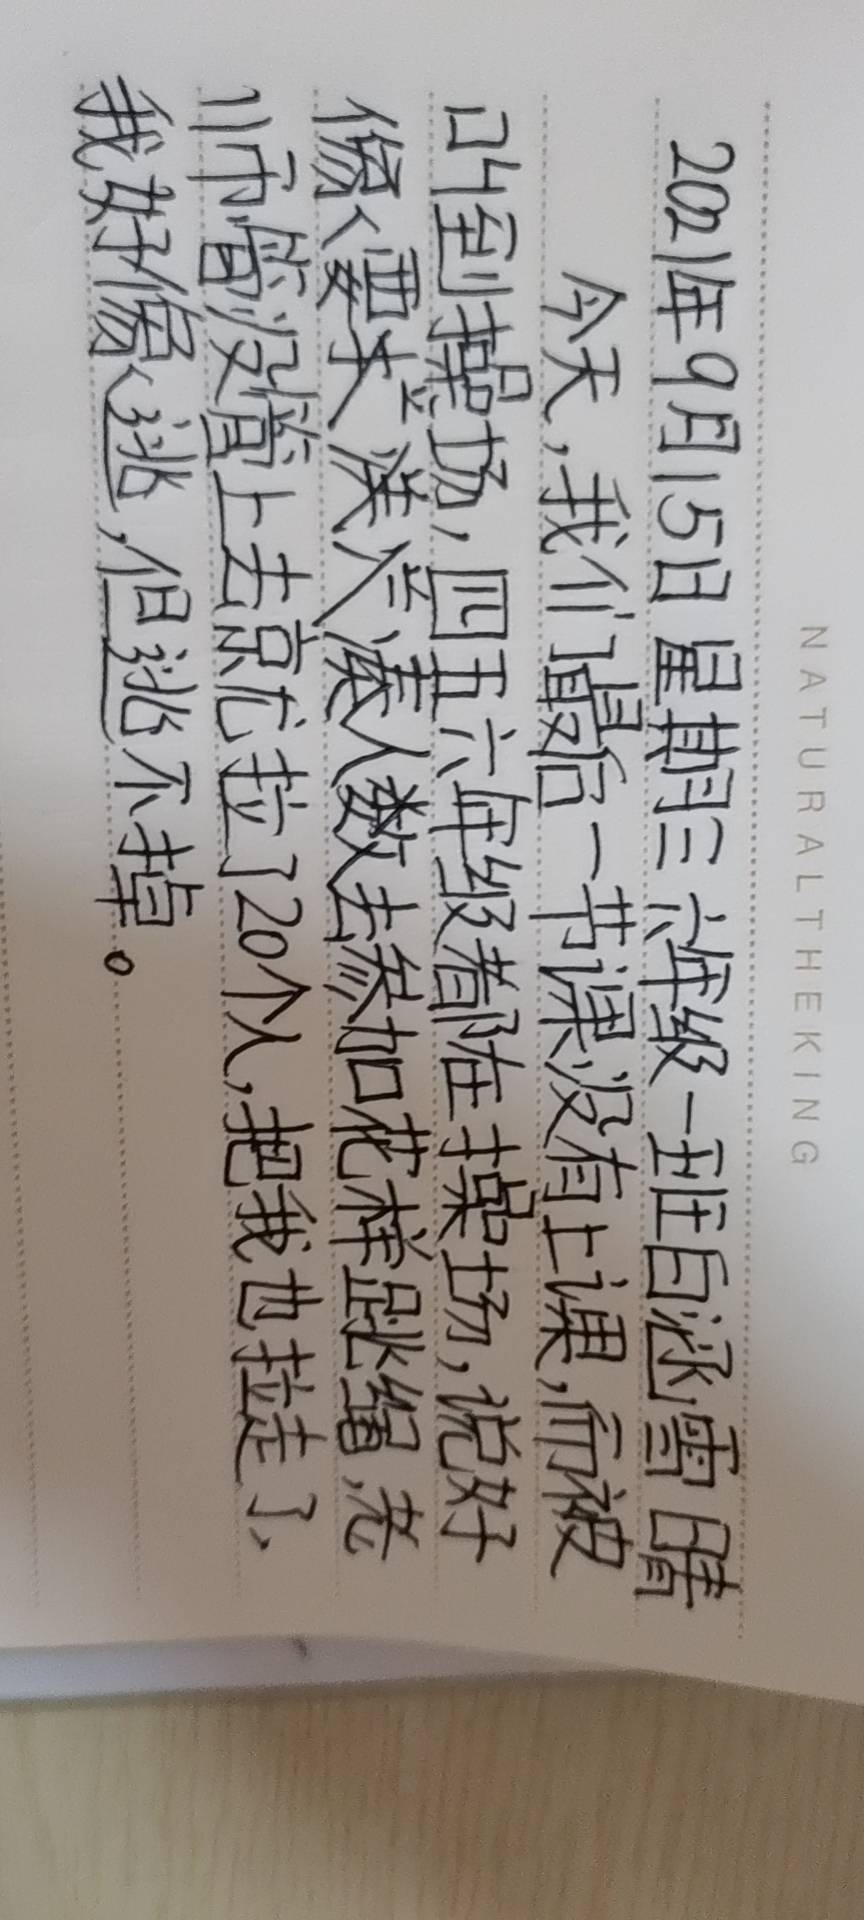 NATURALTHEKING
2021年9月15日 星期三 六年级一班白涵雪 晴
今天,我们最后一节课没有上课,而被
叫到操场,四五六年级都在操场,说好
像要失 凑人数去参加花样跳绳,老
师管没管上去就拉了20个人,把我也拉走了、
我好像逃,但逃不掉。